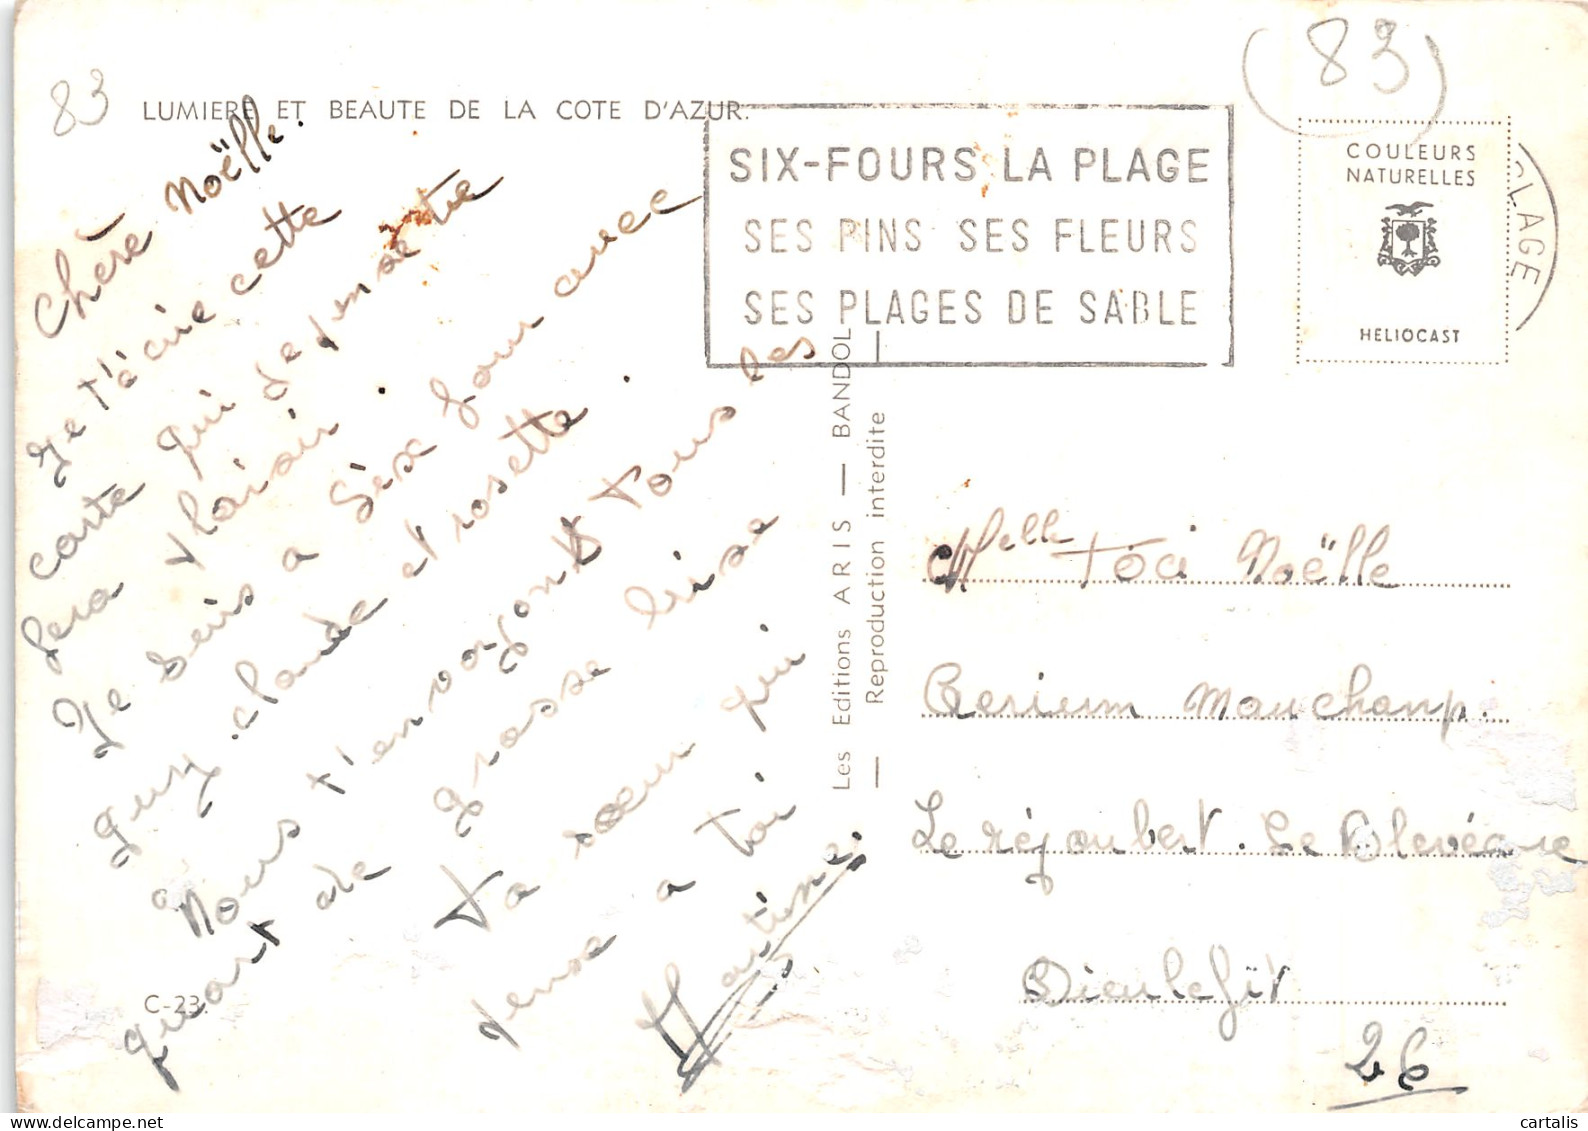 83
(83)
LUMIERE ET BEAUTE DE LA COTE D'AZUR.
SIX-FOURS LA PLAGE
SES PINS SES FLEURS
SES PLAGES DE SABLE
COULEURS
NATURELLES
HELIOCAST
PLAGE
Chère Noëlle.
Je t'écrie cette
carte qui je pense te
fera plaisir.
Je suis a Sèx four avec
guy, claude et rosette.
Nous t'envoyont tous les
quart de grosse bise
Ta sœur qui
pense a toi
Martine
C-23.
Les Editions ARIS — BANDOL
— Reproduction interdite
Melle Toci Noëlle
Aerium Mauchamp.
Le réjoubert. Le
Dieulefit
26
cartalis